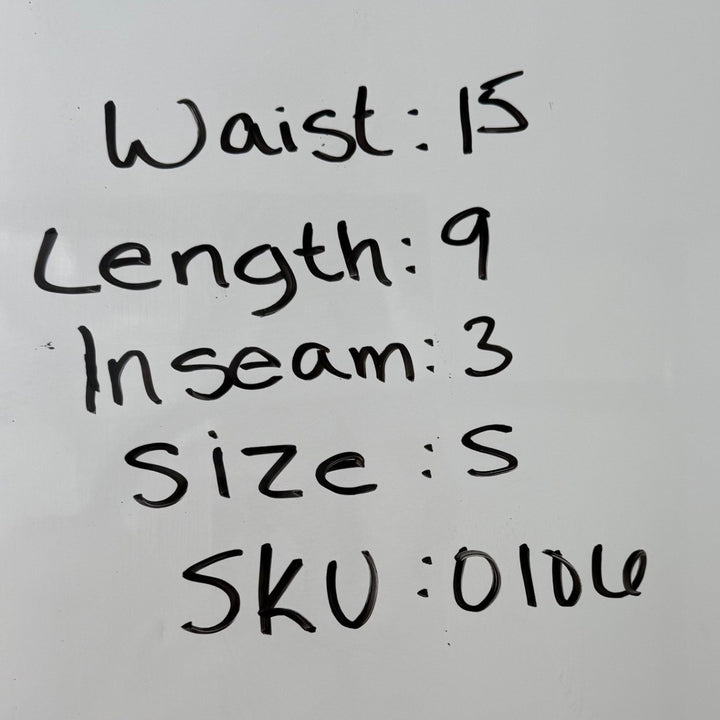 Waist: 15
Length: 9
Inseam: 3
Size: S
SKU: 0106